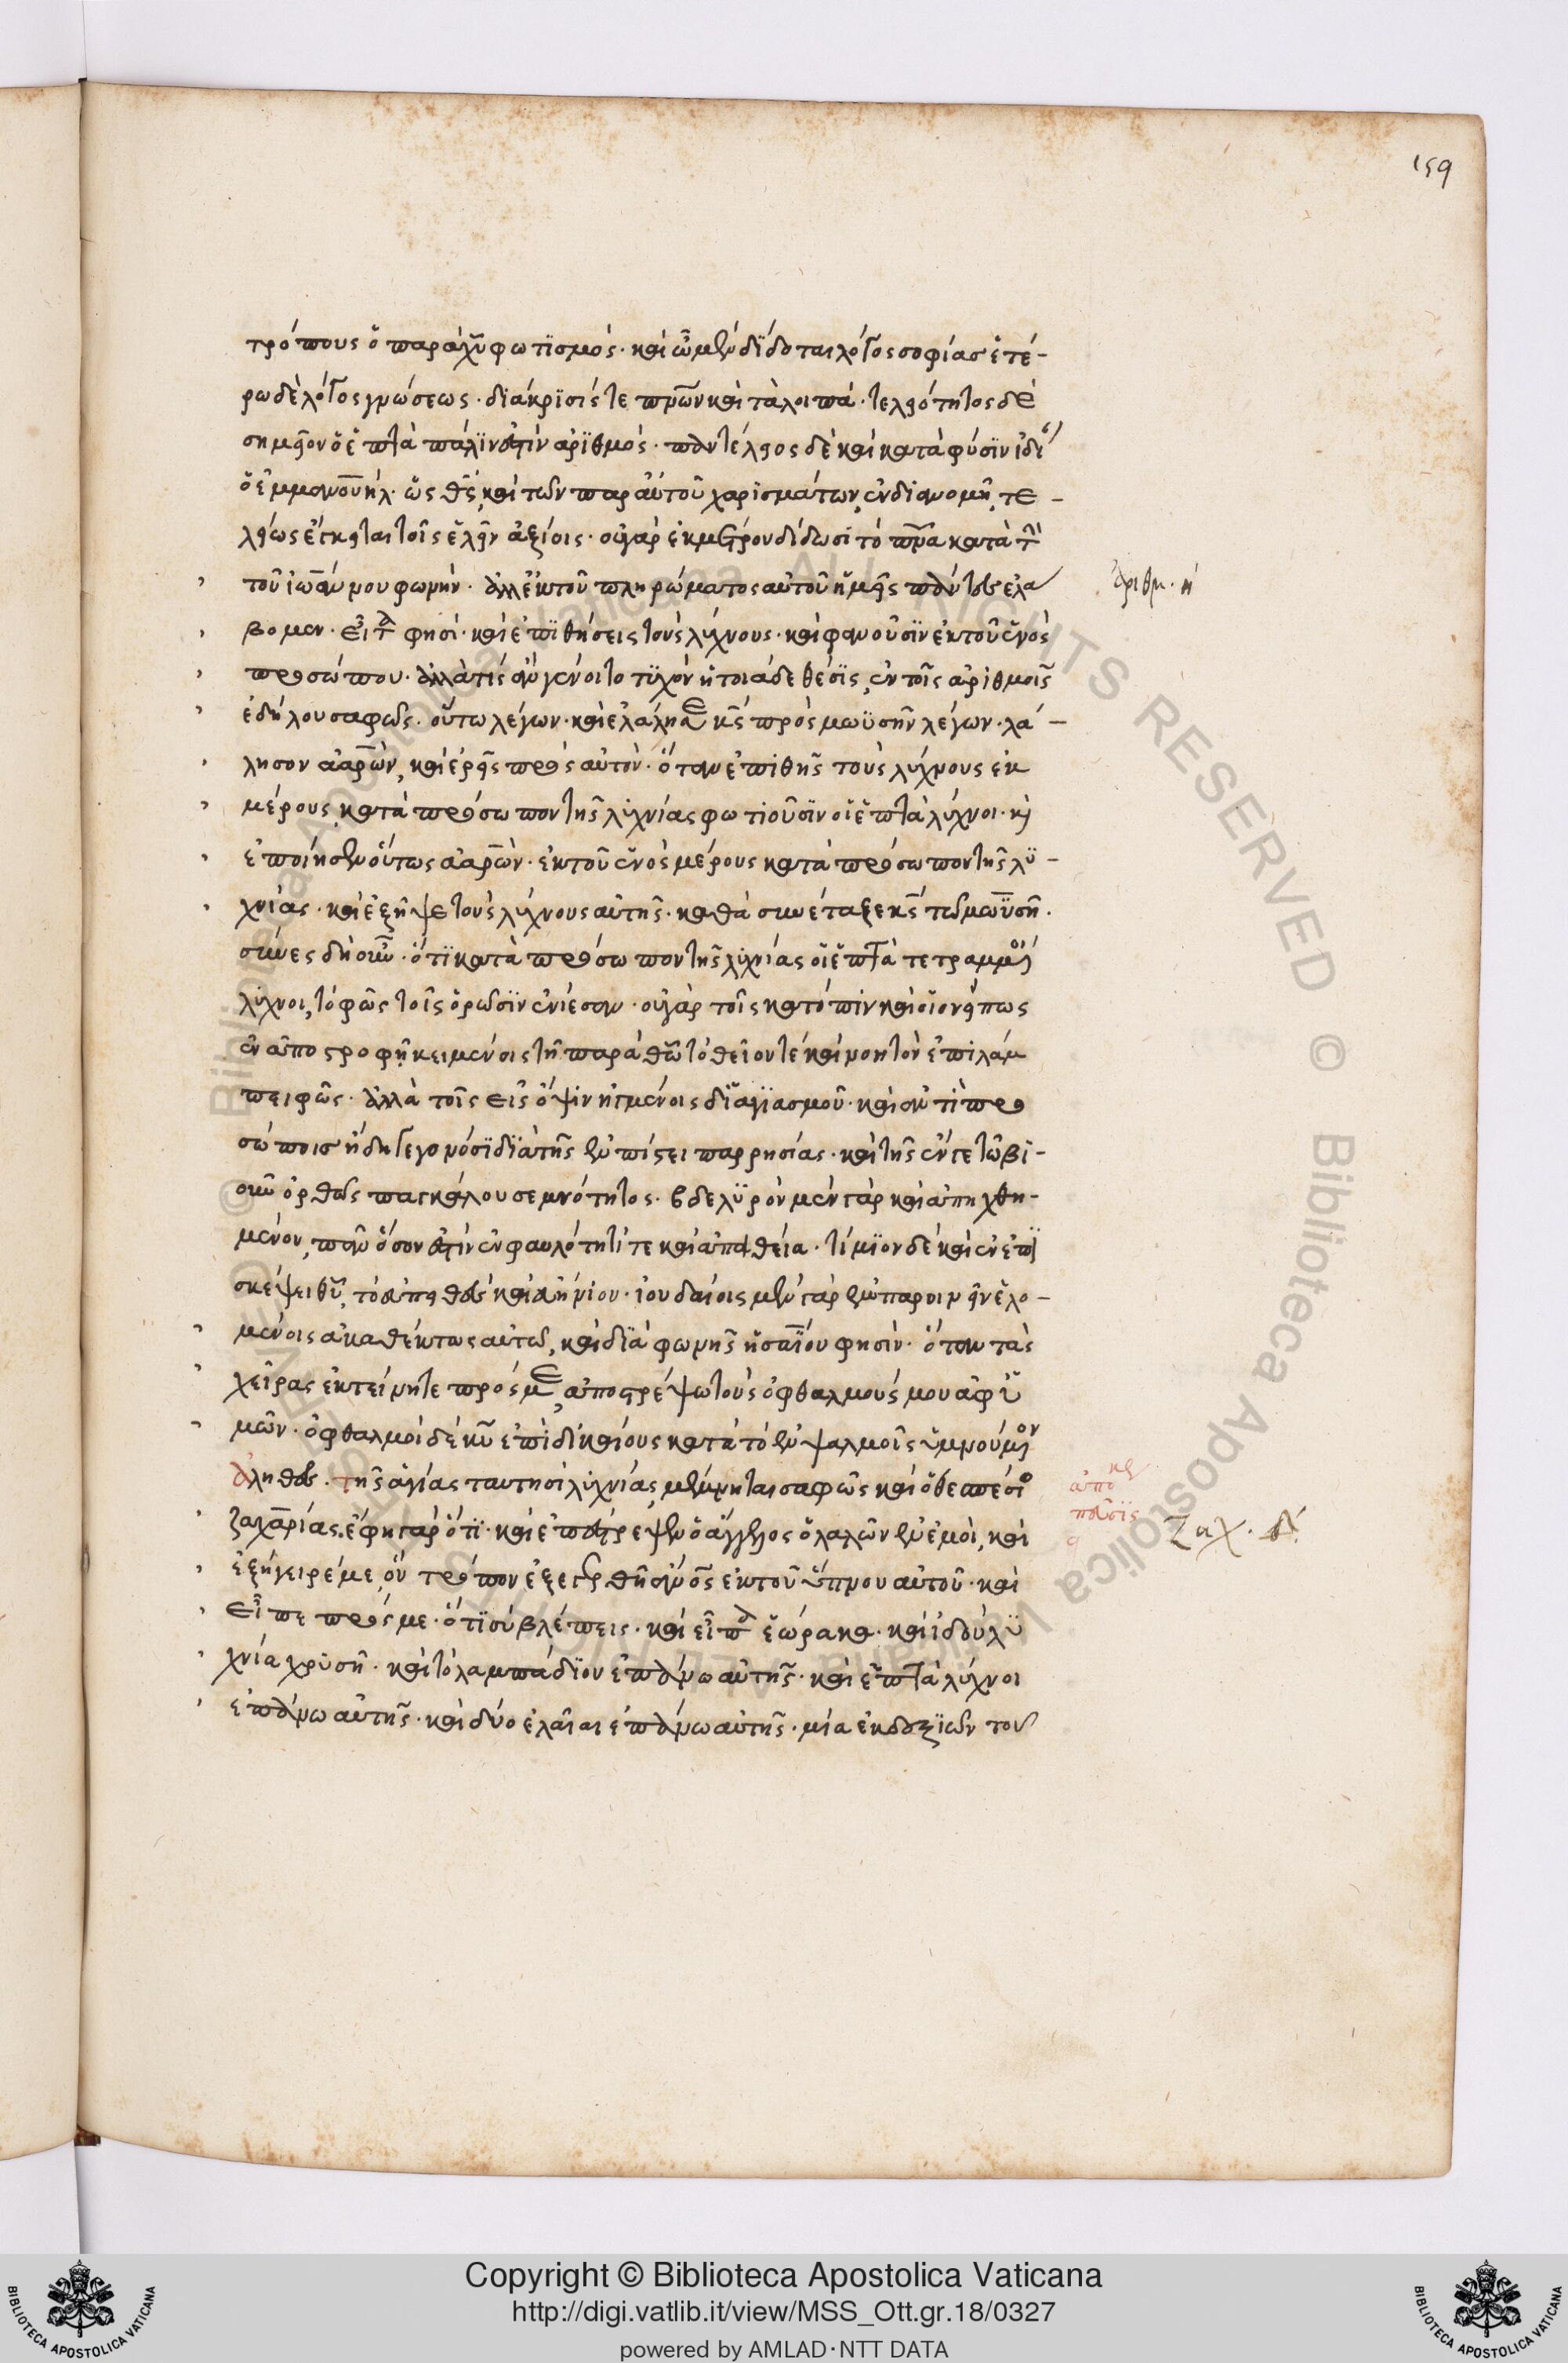 159
τρόπους ὁ παρὰ χῦ φωτισμός· καὶ ὧ μὲν δίδοται λόγος σοφίας ἑτέ-
ρω δὲ λόγος γνώσεως· διάκρισίς τε πνῶν καὶ τὰ λοιπά· τελειότητος δὲ
σημεῖον ὁ ἑπτὰ πάλιν ἐστὶν ἀριθμός· παντέλειος δὲ καὶ κατὰ φύσιν ἰδί
ὁ ἐμμανουήλ· ὡς θς, καὶ τῶν παρ αὐτοῦ χαρισμάτων, ἐν διανομῆ, τε-
λείως ἔσκηται τοῖς ἑλεῖν ἀξίοις· οὐ γὰρ ἐκ μέτρου δίδωσι τὸ πνα κατὰ τὴν
τοῦ ἰωάννου φωνήν· ἀλλ ἐκ τοῦ πληρώματος αὐτοῦ ἡμεῖς πάντες ἐλά
βομεν· εἶτα φησί· καὶ ἐπιθήσεις τοὺς λύχνους· καὶ φανοῦσιν ἐκ τοῦ ἑνὸς
προσώπου· ἀλλὰ τίς ἂν γένοιτο τυχὸν ἡ τοιάδε θέσις, ἐν τοῖς ἀριθμοῖς
ἐδήλου σαφῶς· οὕτω λέγων· καὶ ἐλάλησε κς πρὸς μωϋσῆν λέγων· λά-
λησον ἀαρών, καὶ ἐρεῖς πρὸς αὐτόν· ὅταν ἐπιθῆς τοὺς λύχνους ἐκ
μέρους κατὰ πρόσωπον τῆς λυχνίας φωτιοῦσιν οἱ ἑπτὰ λύχνοι· καὶ
ἐποίησεν οὕτως ἀαρών· ἐκ τοῦ ἑνὸς μέρους κατὰ πρόσωπον τῆς λυ-
χνίας· καὶ ἐξῆψε τοὺς λύχνους αὐτῆς· καθὰ συνέταξε κς τῶ μωϋσῆ·
συνὲς δὴ οὖν· ὅτι κατὰ πρόσωπον τῆς λυχνίας οἱ ἑπτὰ τετραμμένοι
λύχνοι, τὸ φῶς τοῖς ὁρῶσιν ἐνίεσαν· οὐ γὰρ τοῖς κατόπιν καὶ οἱονεί πως
ἐν ἀποστροφῆ κειμένοις τῆ παρὰ θῶ τὸ θεῖον τὲ καὶ νοητὸν ἐπιλάμ
πει φῶς· ἀλλὰ τοῖς εἰς ὄψιν ἡγμένοις δι ἁγιασμοῦ· καὶ ἀντιπρο
σώποις ἤδη γεγονόσι διὰ τῆς ἐν πίστει παρρησίας· καὶ τῆς ἔν γε τῶ βι-
οῦν ὀρθῶς παγκάλου σεμνότητος· βδελυρὸν μὲν γὰρ καὶ ἀπηχθη-
μένον, πᾶν ὅσον ἐστὶν ἐν φαυλότητί τε καὶ ἀπειθεία· τίμιον δὲ καὶ ἐν ἐπι
σκέψει θῦ, τὸ εὐπειθὲς καὶ εὐήνιον· ἰουδαίοις μὲν γὰρ ἐμπαροινεῖν ἑλο-
μένοις ἀκαθέκτως αὐτῶ, καὶ διὰ φωνῆς ἡσαΐου φησίν· ὅταν τὰς
χεῖρας ἐκτείνητε πρός με, ἀποστρέψω τοὺς ὀφθαλμούς μου ἀφ ὑ
μῶν· ὀφθαλμοὶ δὲ κυ ἐπὶ δικαίους κατὰ τὸ ἐν ψαλμοῖς ὑμνούμενον
ἀληθές· τῆς ἁγίας ταυτησὶ λυχνίας, μέμνηται σαφῶς καὶ ὁ θεσπέσιος
ζαχαρίας. ἔφη γὰρ ὅτι· καὶ ἐπέστρεψεν ὁ ἄγγελος ὁ λαλῶν ἐν ἐμοί, καὶ
ἐξήγειρέ με, ὃν τρόπον ἐξεγερθῆ ἄνος ἐκ τοῦ ὕπνου αὐτοῦ· καὶ
εἶπε πρός με· ὅτι σὺ βλέπεις· καὶ εἶπα ἑώρακα· καὶ ἰδοὺ λυ
χνία χρυσῆ· καὶ τὸ λαμπάδιον ἐπάνω αὐτῆς· καὶ ἑπτὰ λύχνοι
ἐπάνω αὐτῆς· καὶ δύο ἐλαῖαι ἐπάνω αὐτῆς· μία ἐκ δεξιῶν τοῦ
ἀριθμ. η
Ζαχ. δ.
Copyright © Biblioteca Apostolica Vaticana
http://digi.vatlib.it/view/MSS_Ott.gr.18/0327
powered by AMLAD·NTT DATA